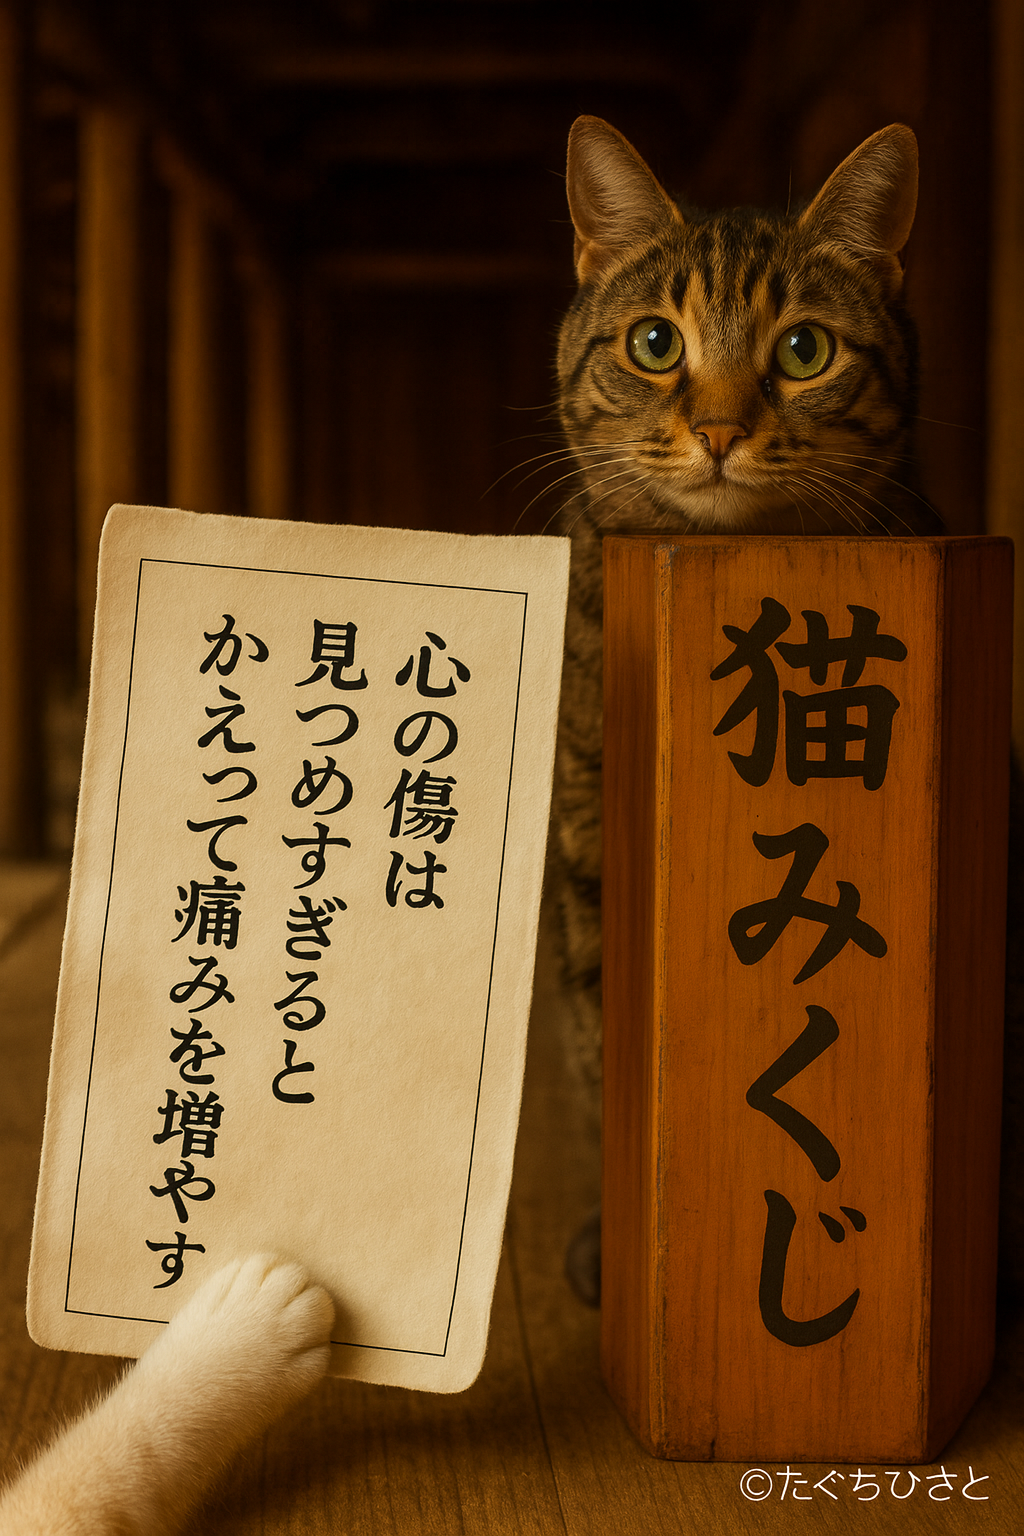 心の傷は
見つめすぎると
かえって痛みを増やす
猫みくじ
©たぐちひさと